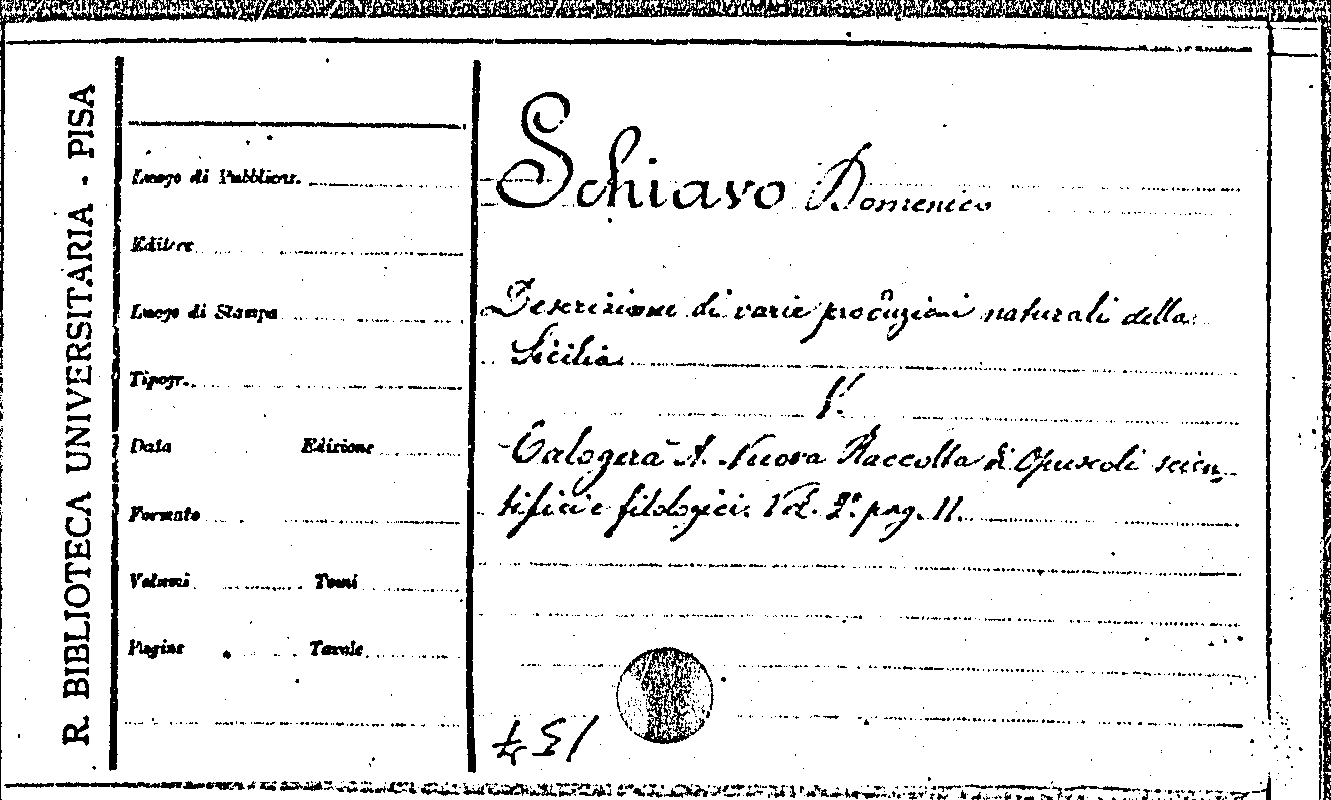 R. BIBLIOTECA UNIVERSITARIA - PISA
Luogo di Pubblicaz.
Editore
Luogo di Stampa
Tipogr.
Data Edizione
Formato
Volumi Tomi
Pagine Tavole
Schiavo Domenico
Descrizione di varie produzioni naturali della
Sicilia.
V.
Calogerà A. Nuova Raccolta di Opuscoli scien-
tifici e filologici. Vol. 2º. pag. 11.